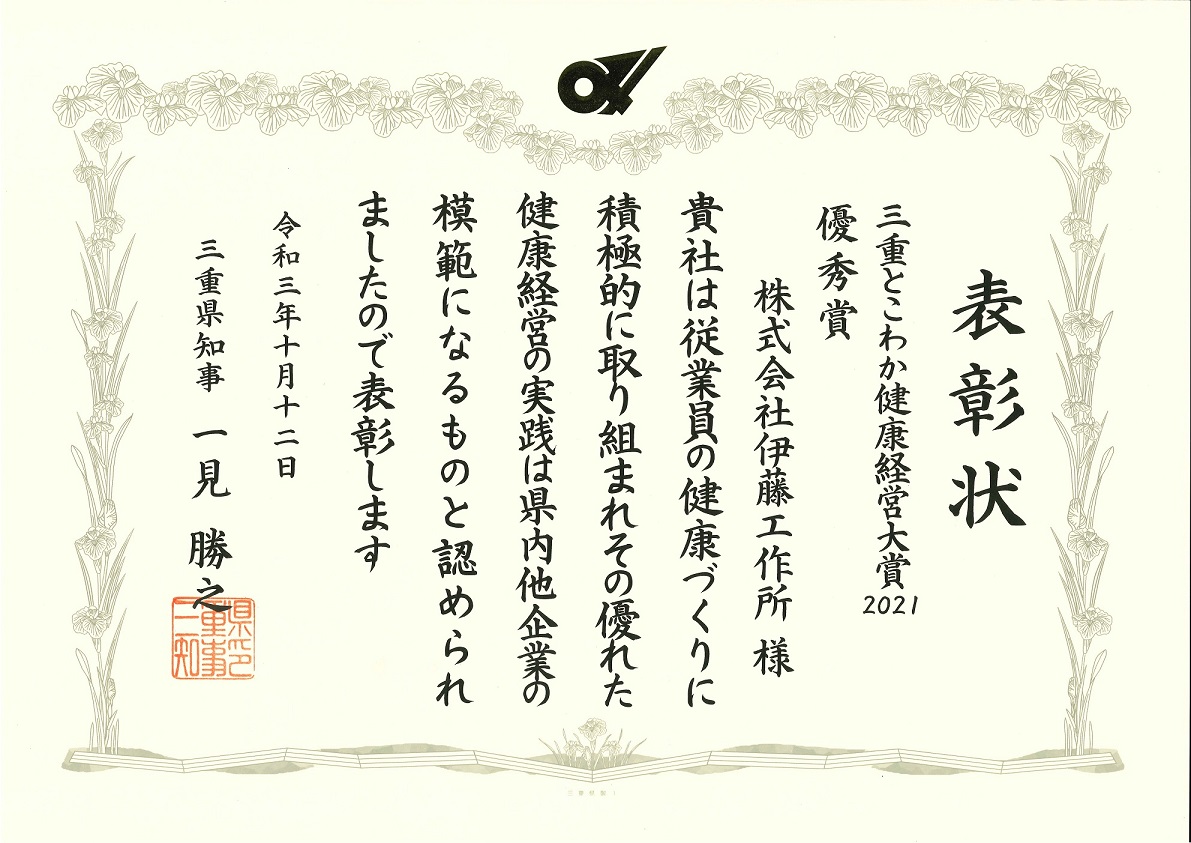 表彰状
三重とこわか健康経営大賞2021
優秀賞
株式会社伊藤工作所 様
貴社は従業員の健康づくりに
積極的に取り組まれその優れた
健康経営の実践は県内他企業の
模範になるものと認められ
ましたので表彰します
令和三年十月十二日
三重県知事 一見 勝之